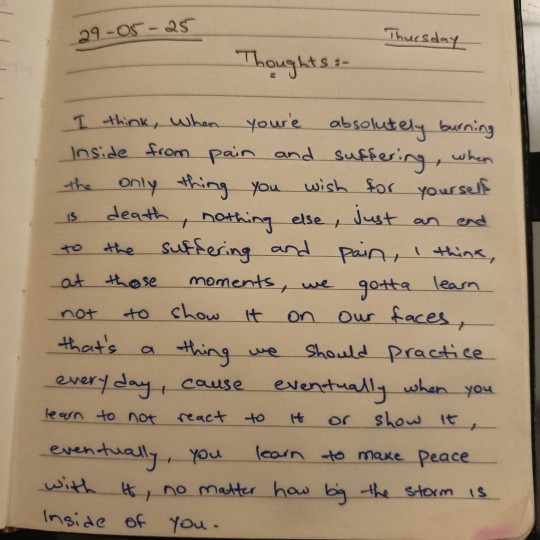 29-05-25
Thursday
Thoughts:-
I think, when you're absolutely burning
inside from pain and suffering, when
the only thing you wish for yourself
is death, nothing else, just an end
to the suffering and pain, i think,
at those moments, we gotta learn
not to show it on our faces,
that's a thing we should practice
everyday, cause eventually when you
learn to not react to it or show it,
eventually, you learn to make peace
with it, no matter how big the storm is
inside of you.